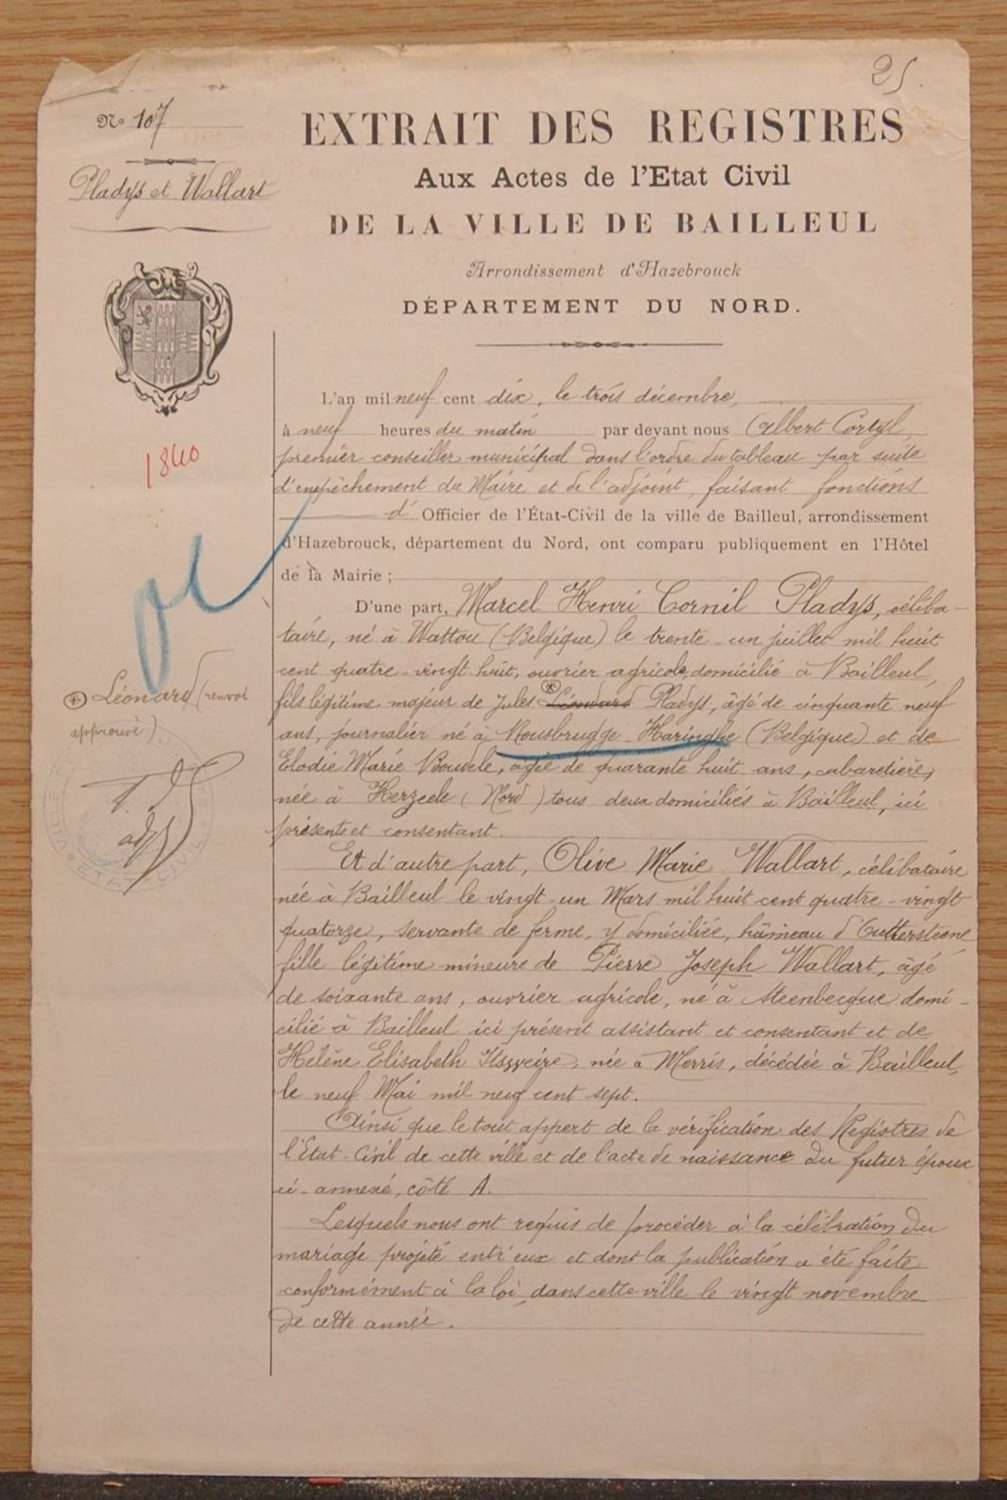 25
No 107
Pladys et Wallart
EXTRAIT DES REGISTRES
Aux Actes de l'Etat Civil
DE LA VILLE DE BAILLEUL
Arrondissement d'Hazebrouck
DÉPARTEMENT DU NORD.
1840
L'an mil neuf cent dix, le trois décembre,
à neuf heures du matin par devant nous Albert Cortyl,
premier conseiller municipal dans l'ordre du tableau par suite
d'empêchement du Maire et de l'adjoint, faisant fonctions
d' Officier de l'État-Civil de la ville de Bailleul, arrondissement
d'Hazebrouck, département du Nord, ont comparu publiquement en l'Hôtel
de la Mairie ;
D'une part, Marcel Henri Cornil Pladys, céliba-
taire, né à Watou (Belgique) le trente-un juillet mil huit
cent quatre-vingt huit, ouvrier agricole domicilié à Bailleul,
fils légitime majeur de Jules Léonard Pladys, âgé de cinquante neuf
ans, journalier né à Rousbrugge-Haringhe (Belgique) et de
Elodie Marie Bouvele, âgée de quarante huit ans, cabaretière,
née à Herzeele (Nord) tous deux domiciliés à Bailleul, ici
présents et consentant.
Léonard (renvoi
approuvé)
Et d'autre part, Olive Marie Wallart, célibataire
née à Bailleul le vingt-un Mars mil huit cent quatre-vingt
quatorze, servante de ferme, y domiciliée, hameau d'Outtersteene
fille légitime mineure de Pierre Joseph Wallart, âgé
de soixante ans, ouvrier agricole, né à Steenbecque domi-
cilié à Bailleul ici présent assistant et consentant et de
Helène Elisabeth née à Merris, décédée à Bailleul,
le neuf Mai mil neuf cent sept.
Ainsi que le tout appert de la vérification des Registres de
l'Etat-Civil de cette ville et de l'acte de naissance du futur époux
ci-annexé, côté A.
Lesquels nous ont requis de procéder à la célébration du
mariage projeté entr'eux et dont la publication a été faite
conformément à la loi, dans cette ville le vingt novembre
de cette année.